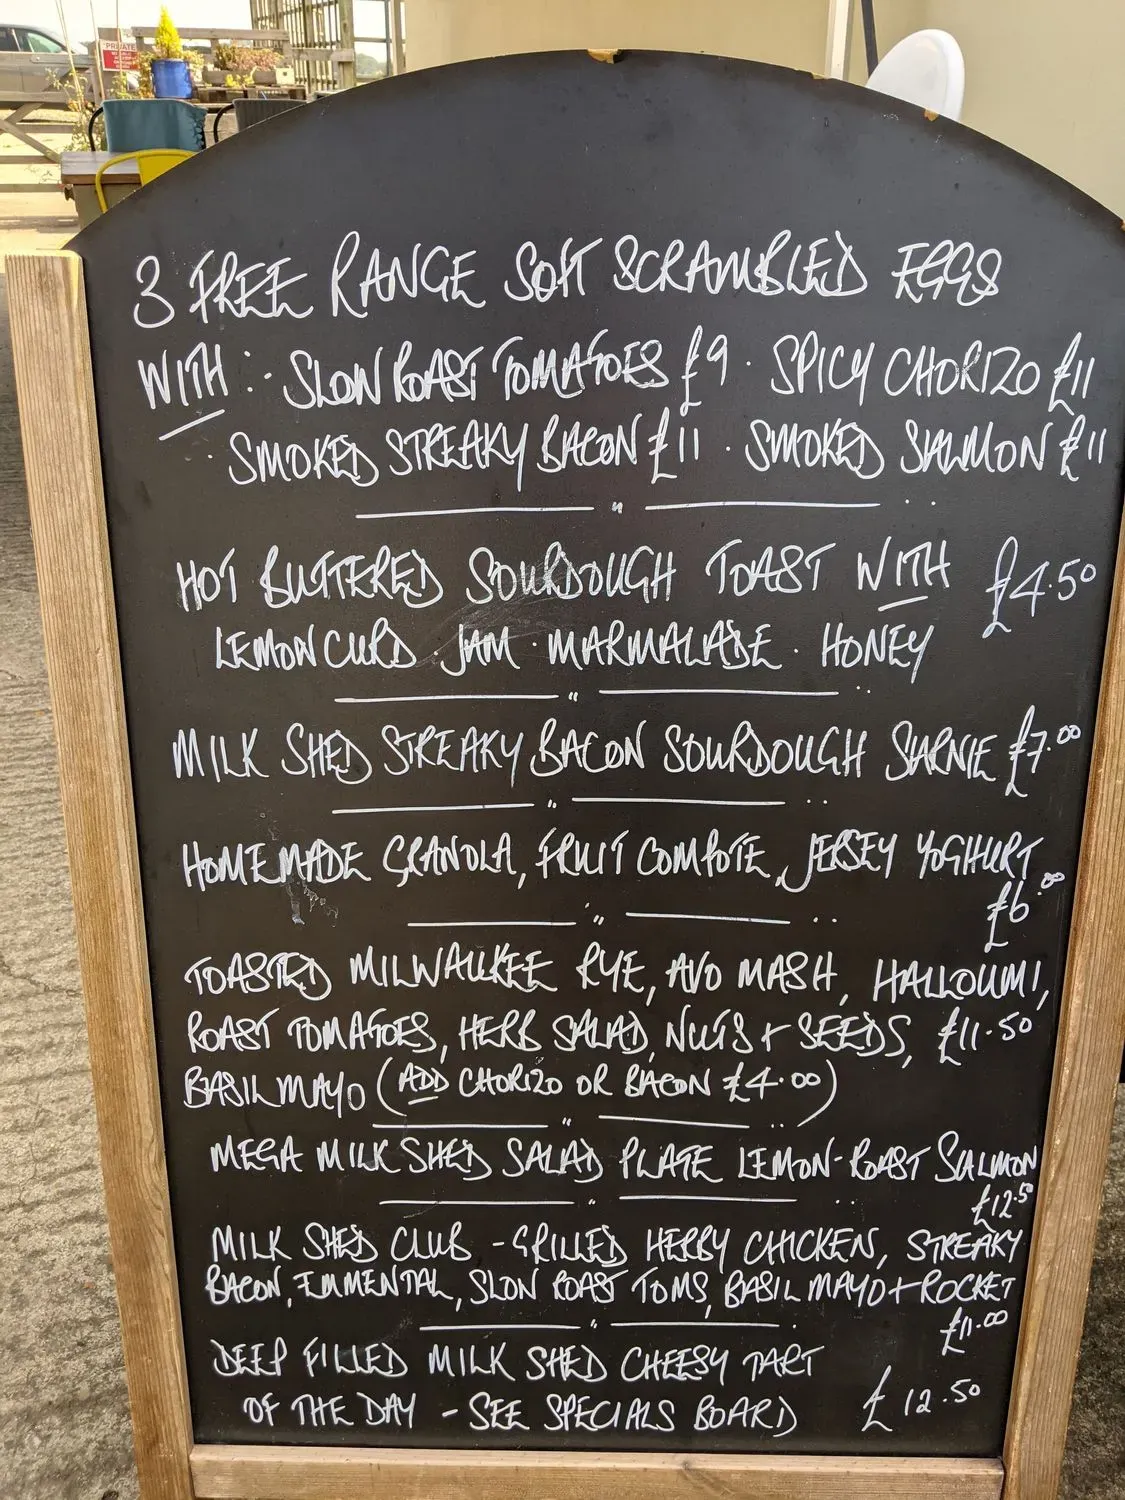 PRIVATE
3 FREE RANGE SOFT SCRAMBLED EGGS
WITH:- SLOW ROAST TOMATOES £9 · SPICY CHORIZO £11
· SMOKED STREAKY BACON £11 · SMOKED SALMON £11
HOT BUTTERED SOURDOUGH TOAST WITH £4.50
LEMON CURD · JAM · MARMALADE · HONEY
MILK SHED STREAKY BACON SOURDOUGH SARNIE £7.00
HOMEMADE GRANOLA, FRUIT COMPOTE, JERSEY YOGHURT
£6.00
TOASTED MILWAUKEE RYE, AVO MASH, HALLOUMI,
ROAST TOMATOES, HERB SALAD, NUTS + SEEDS, £11.50
BASIL MAYO (ADD CHORIZO OR BACON £4.00)
MEGA MILK SHED SALAD PLATE LEMON-ROAST SALMON
£12.50
MILK SHED CLUB - GRILLED HERBY CHICKEN, STREAKY
BACON, EMMENTAL, SLOW ROAST TOMS, BASIL MAYO + ROCKET
£11.00
DEEP FILLED MILK SHED CHEESY TART
OF THE DAY - SEE SPECIALS BOARD £12.50